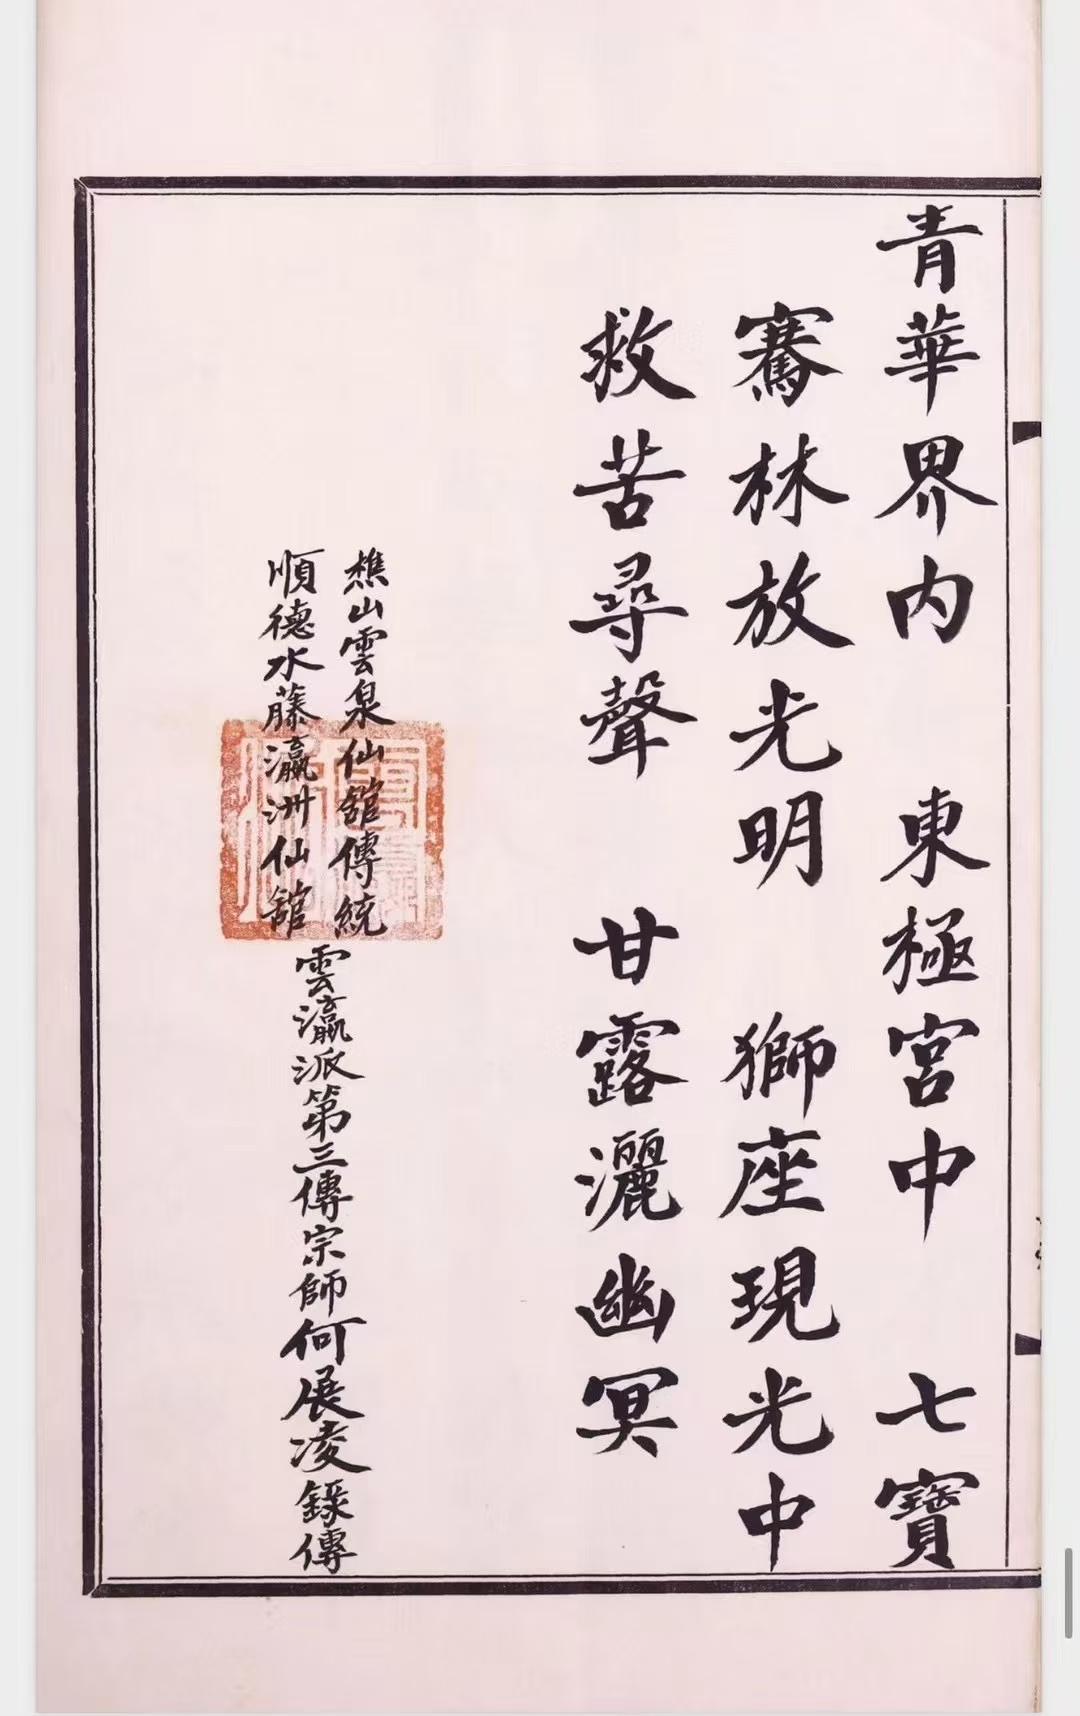 青華界內 東極宮中 七寶
騫林放光明 獅座現光中
救苦尋聲 甘露灑幽冥
樵山雲泉仙舘傳統
順德水藤瀛洲仙舘
雲瀛派第三傳宗師何展凌錄傳